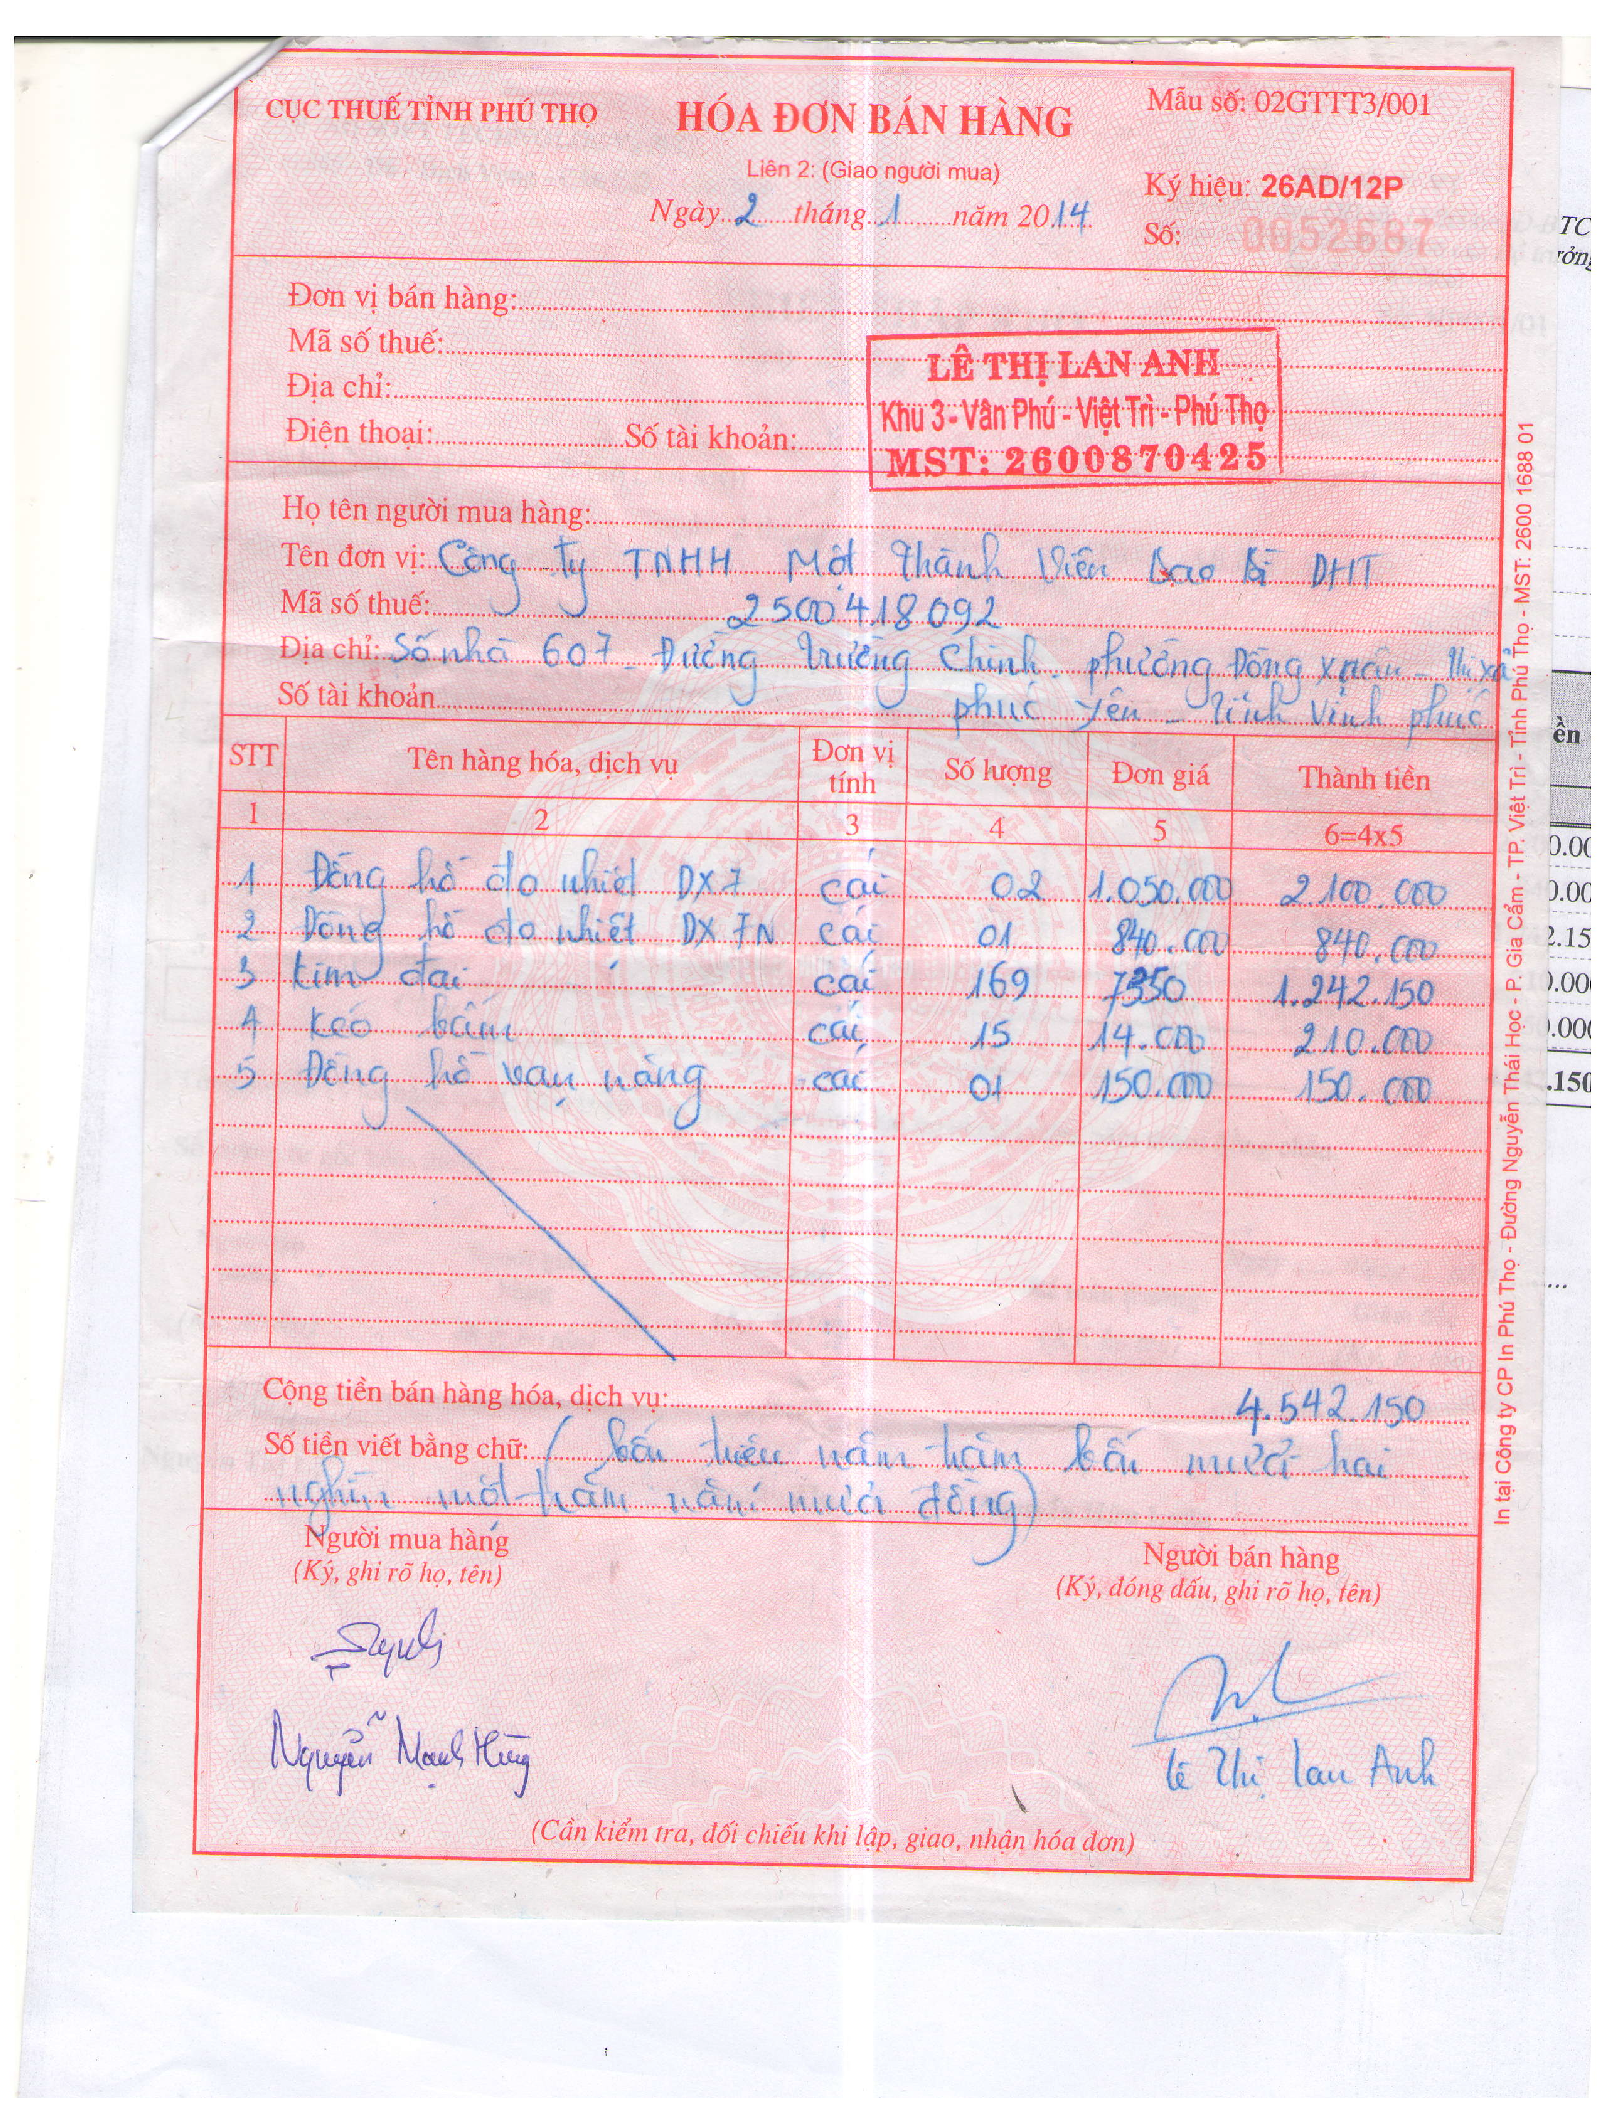 CỤC THUẾ TỈNH PHÚ THỌ
HÓA ĐƠN BÁN HÀNG
Mẫu số: 02GTTT3/001
Liên 2: (Giao người mua)
Ký hiệu: 26AD/12P
Ngày 2 tháng 1 năm 2014
Số: 0052687
Đơn vị bán hàng:
Mã số thuế:
Địa chỉ:
Điện thoại: Số tài khoản:
LÊ THỊ LAN ANH
Khu 3 - Vân Phú - Việt Trì - Phú Thọ
MST: 2600870425
Họ tên người mua hàng:
Tên đơn vị: Công ty TNHH Một Thành Viên Bao Bì DHT
Mã số thuế: 2500418092
Địa chỉ: Số nhà 607 - Đường Trường Chinh - phường Đồng Xuân - Thị xã
Số tài khoản phúc yên - Tỉnh Vĩnh phúc
STT Tên hàng hóa, dịch vụ Đơn vị tính Số lượng Đơn giá Thành tiền
1 2 3 4 5 6=4x5
1 Đồng hồ đo nhiệt DX7 cái 02 1.050.000 2.100.000
2 Đồng hồ đo nhiệt DX7N cái 01 840.000 840.000
3 kim đai cái 169 7350 1.242.150
4 kéo bấm cái 15 14.000 210.000
5 Đồng hồ vạn năng cái 01 150.000 150.000
Cộng tiền bán hàng hóa, dịch vụ: 4.542.150
Số tiền viết bằng chữ: ( bốn triệu năm trăm bốn mươi hai
nghìn một trăm năm mươi đồng)
Người mua hàng
(Ký, ghi rõ họ, tên)
Người bán hàng
(Ký, đóng dấu, ghi rõ họ, tên)
Nguyễn Mạnh Hùng
Lê Thị Lan Anh
(Cần kiểm tra, đối chiếu khi lập, giao, nhận hóa đơn)
In tại Công ty CP In Phú Thọ - Đường Nguyễn Thái Học - P. Gia Cẩm - TP. Việt Trì - Tỉnh Phú Thọ - MST: 2600 1688 01